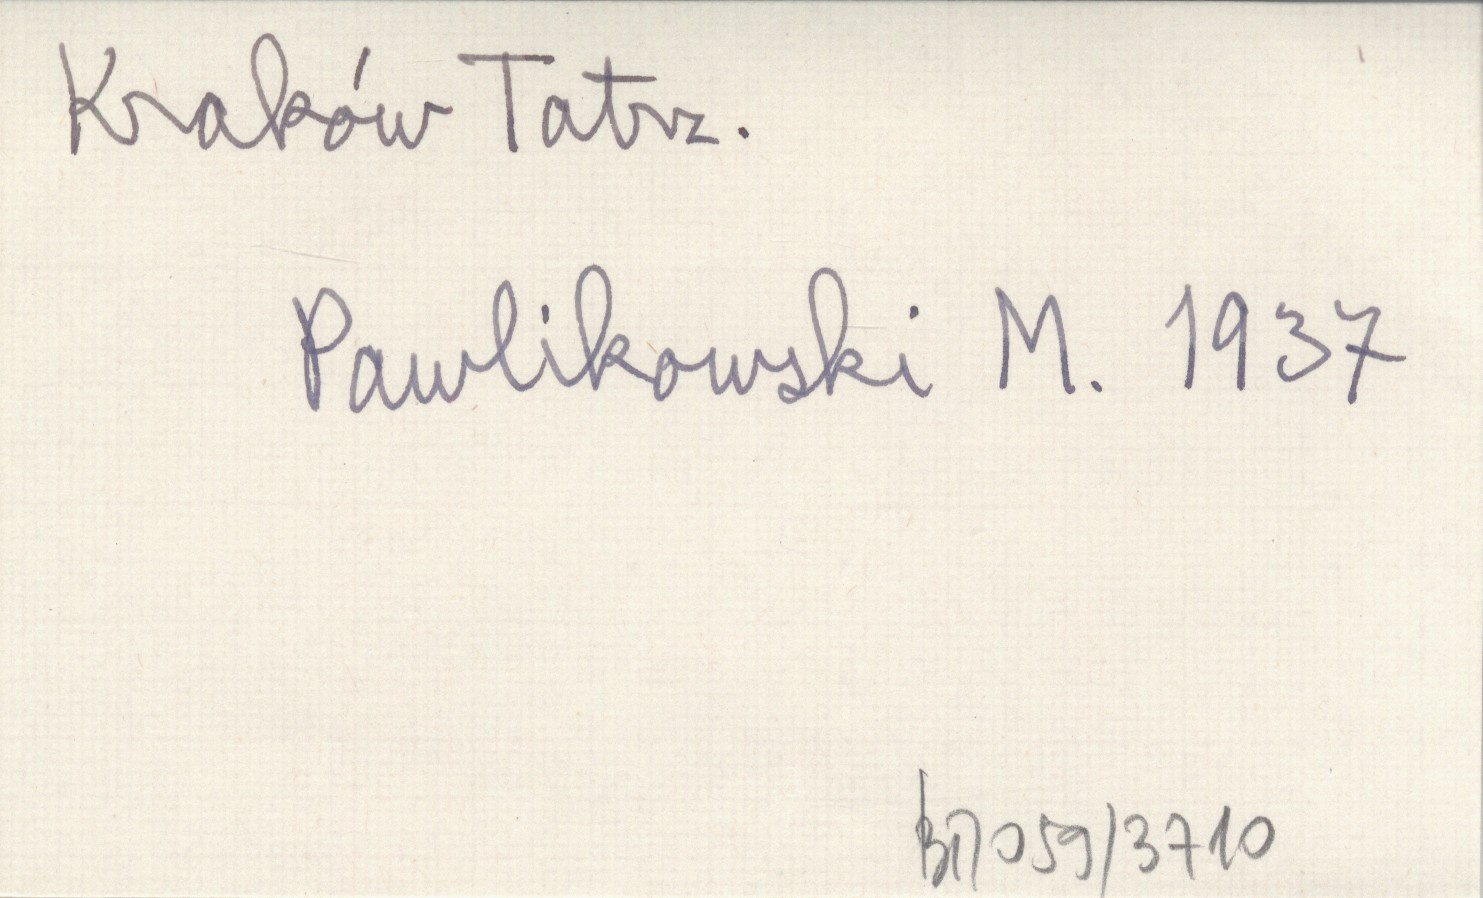 Kraków Tatrz.
Pawlikowski M. 1937
059/3710